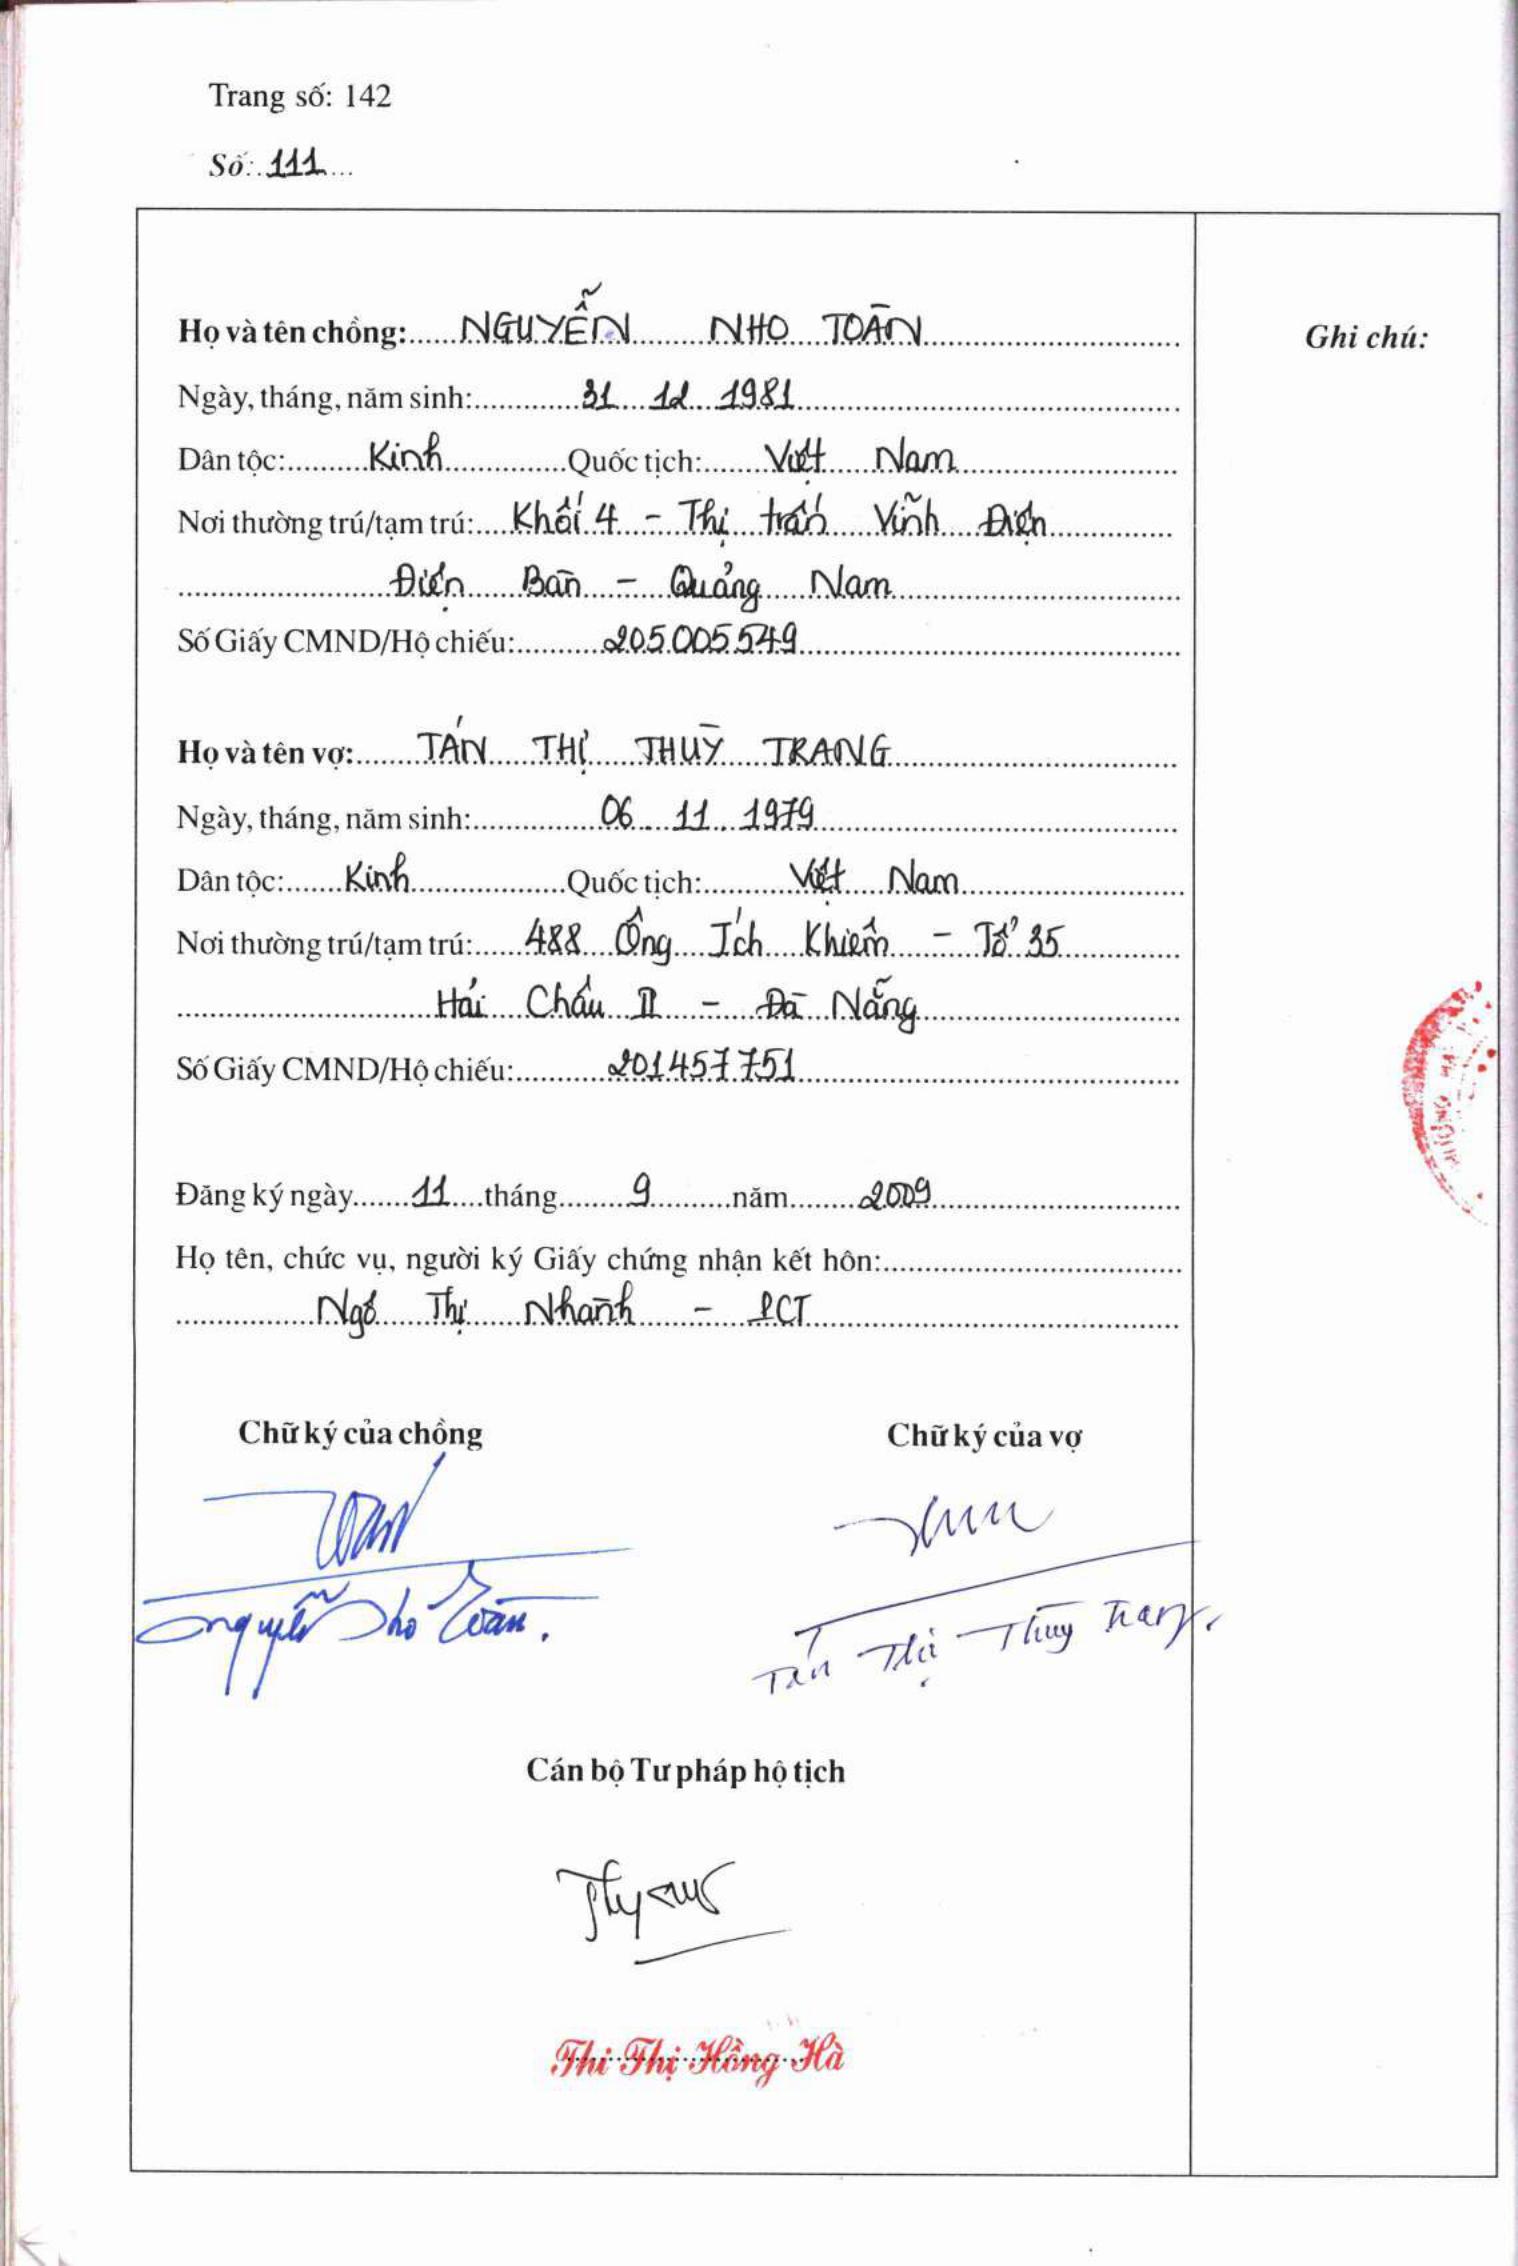 Trang số: 142
Số: 111
Họ và tên chồng: NGUYỄN NHO TOÀN
Ghi chú:
Ngày, tháng, năm sinh: 31 12 1981
Dân tộc: Kinh Quốc tịch: Việt Nam
Nơi thường trú/tạm trú: Khối 4 - Thị trấn Vĩnh Điện
Điện Bàn - Quảng Nam
Số Giấy CMND/Hộ chiếu: 205005549
Họ và tên vợ: TÁN THỊ THUỲ TRANG
Ngày, tháng, năm sinh: 06 11 1979
Dân tộc: Kinh Quốc tịch: Việt Nam
Nơi thường trú/tạm trú: 488 Ông Ích Khiêm - Tổ 35
Hải Châu II - Đà Nẵng
Số Giấy CMND/Hộ chiếu: 201457751
Đăng ký ngày 11 tháng 9 năm 2009
Họ tên, chức vụ, người ký Giấy chứng nhận kết hôn:
Ngô Thị Nhành - PCT
Chữ ký của chồng Chữ ký của vợ
Nguyễn Nho Toàn. Tán Thị Thùy Trang.
Cán bộ Tư pháp hộ tịch
Thi Thị Hồng Hà